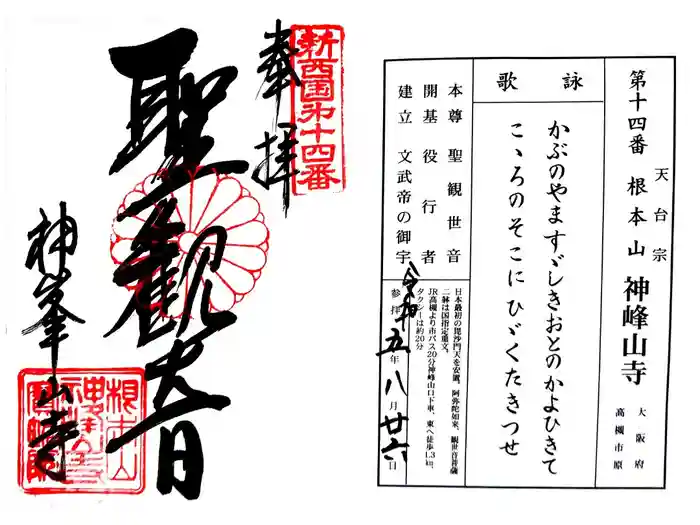 奉拝
新西国第十四番
聖観世音
神峯山寺
第十四番 根本山 神峰山寺
天台宗
大阪府
高槻市原
詠歌
かぶのやますゞしきおとのかよひきて
こゝろのそこにひゞくたきつせ
本尊 聖観世音
開基 役行者
建立 文武帝の御宇
日本最初の毘沙門天を安置。阿弥陀如来、観世音菩薩
二躰は国指定重文。
JR高槻より市バス20分神峰山口下車、東へ徒歩1.3㎞。
タクシーは約20分
参拝 令和五年八月廿六日